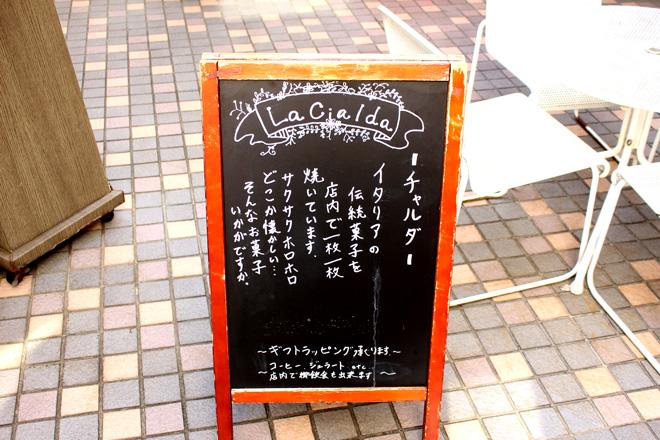 La Cialda
ーチャルダー
イタリアの
伝統菓子を
店内で一枚一枚
焼いています.
サクサクホロホロ
どこか懐かしい…
そんなお菓子
いかがですか.
～ギフトラッピング承ります～
コーヒー. ジェラート etc
～店内で御飲食も出来ます～